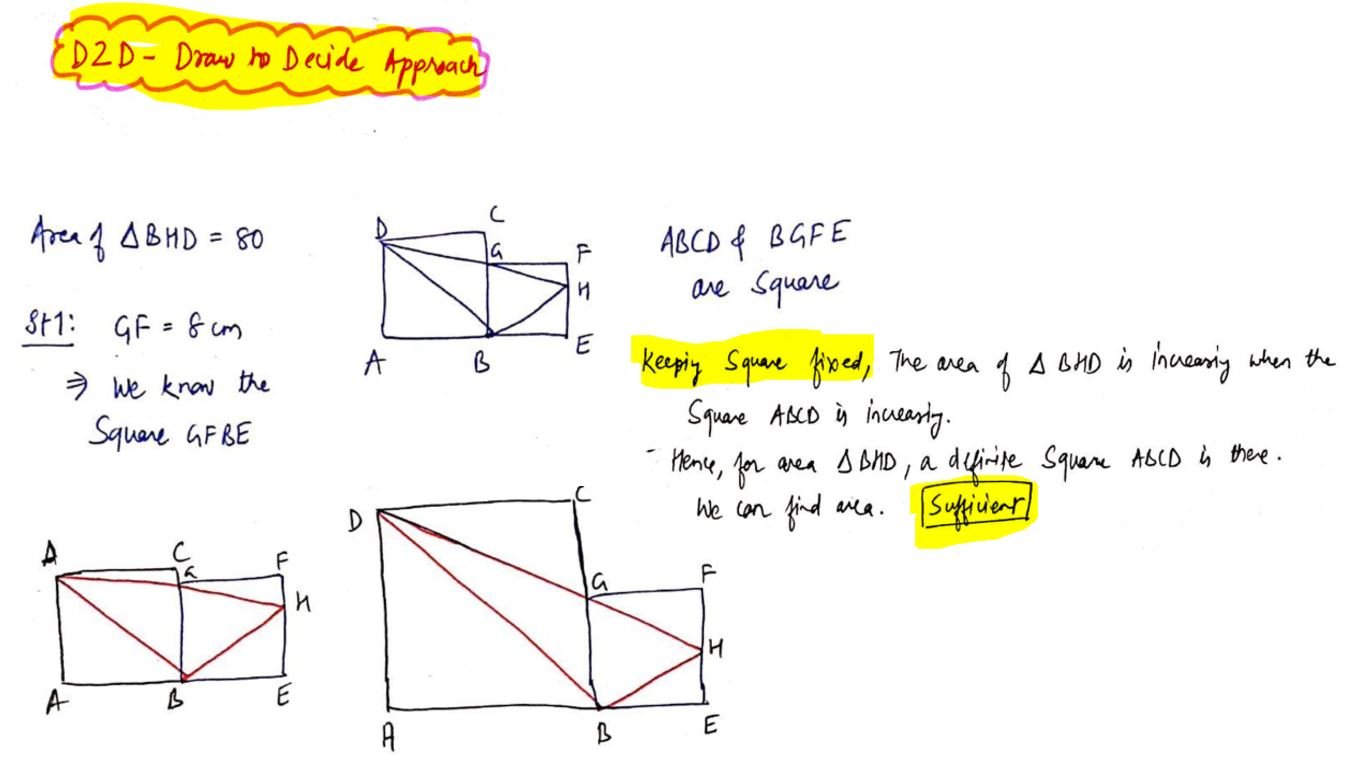 D2D - Draw to Decide Approach
Area of ΔBHD = 80
St1: GF = 8 cm
⇒ We know the
Square GFBE
D
C
G
F
H
A
B
E
ABCD & BGFE
are Square
Keepiy Square fixed, The area of Δ BHD is increasiy when the
Square ABCD is increasiy.
- Hence, for area ΔBHD, a definite Square ABCD is there.
We can find area. Sufficient
A
C
G
F
H
A
B
E
D
C
G
F
H
A
B
E